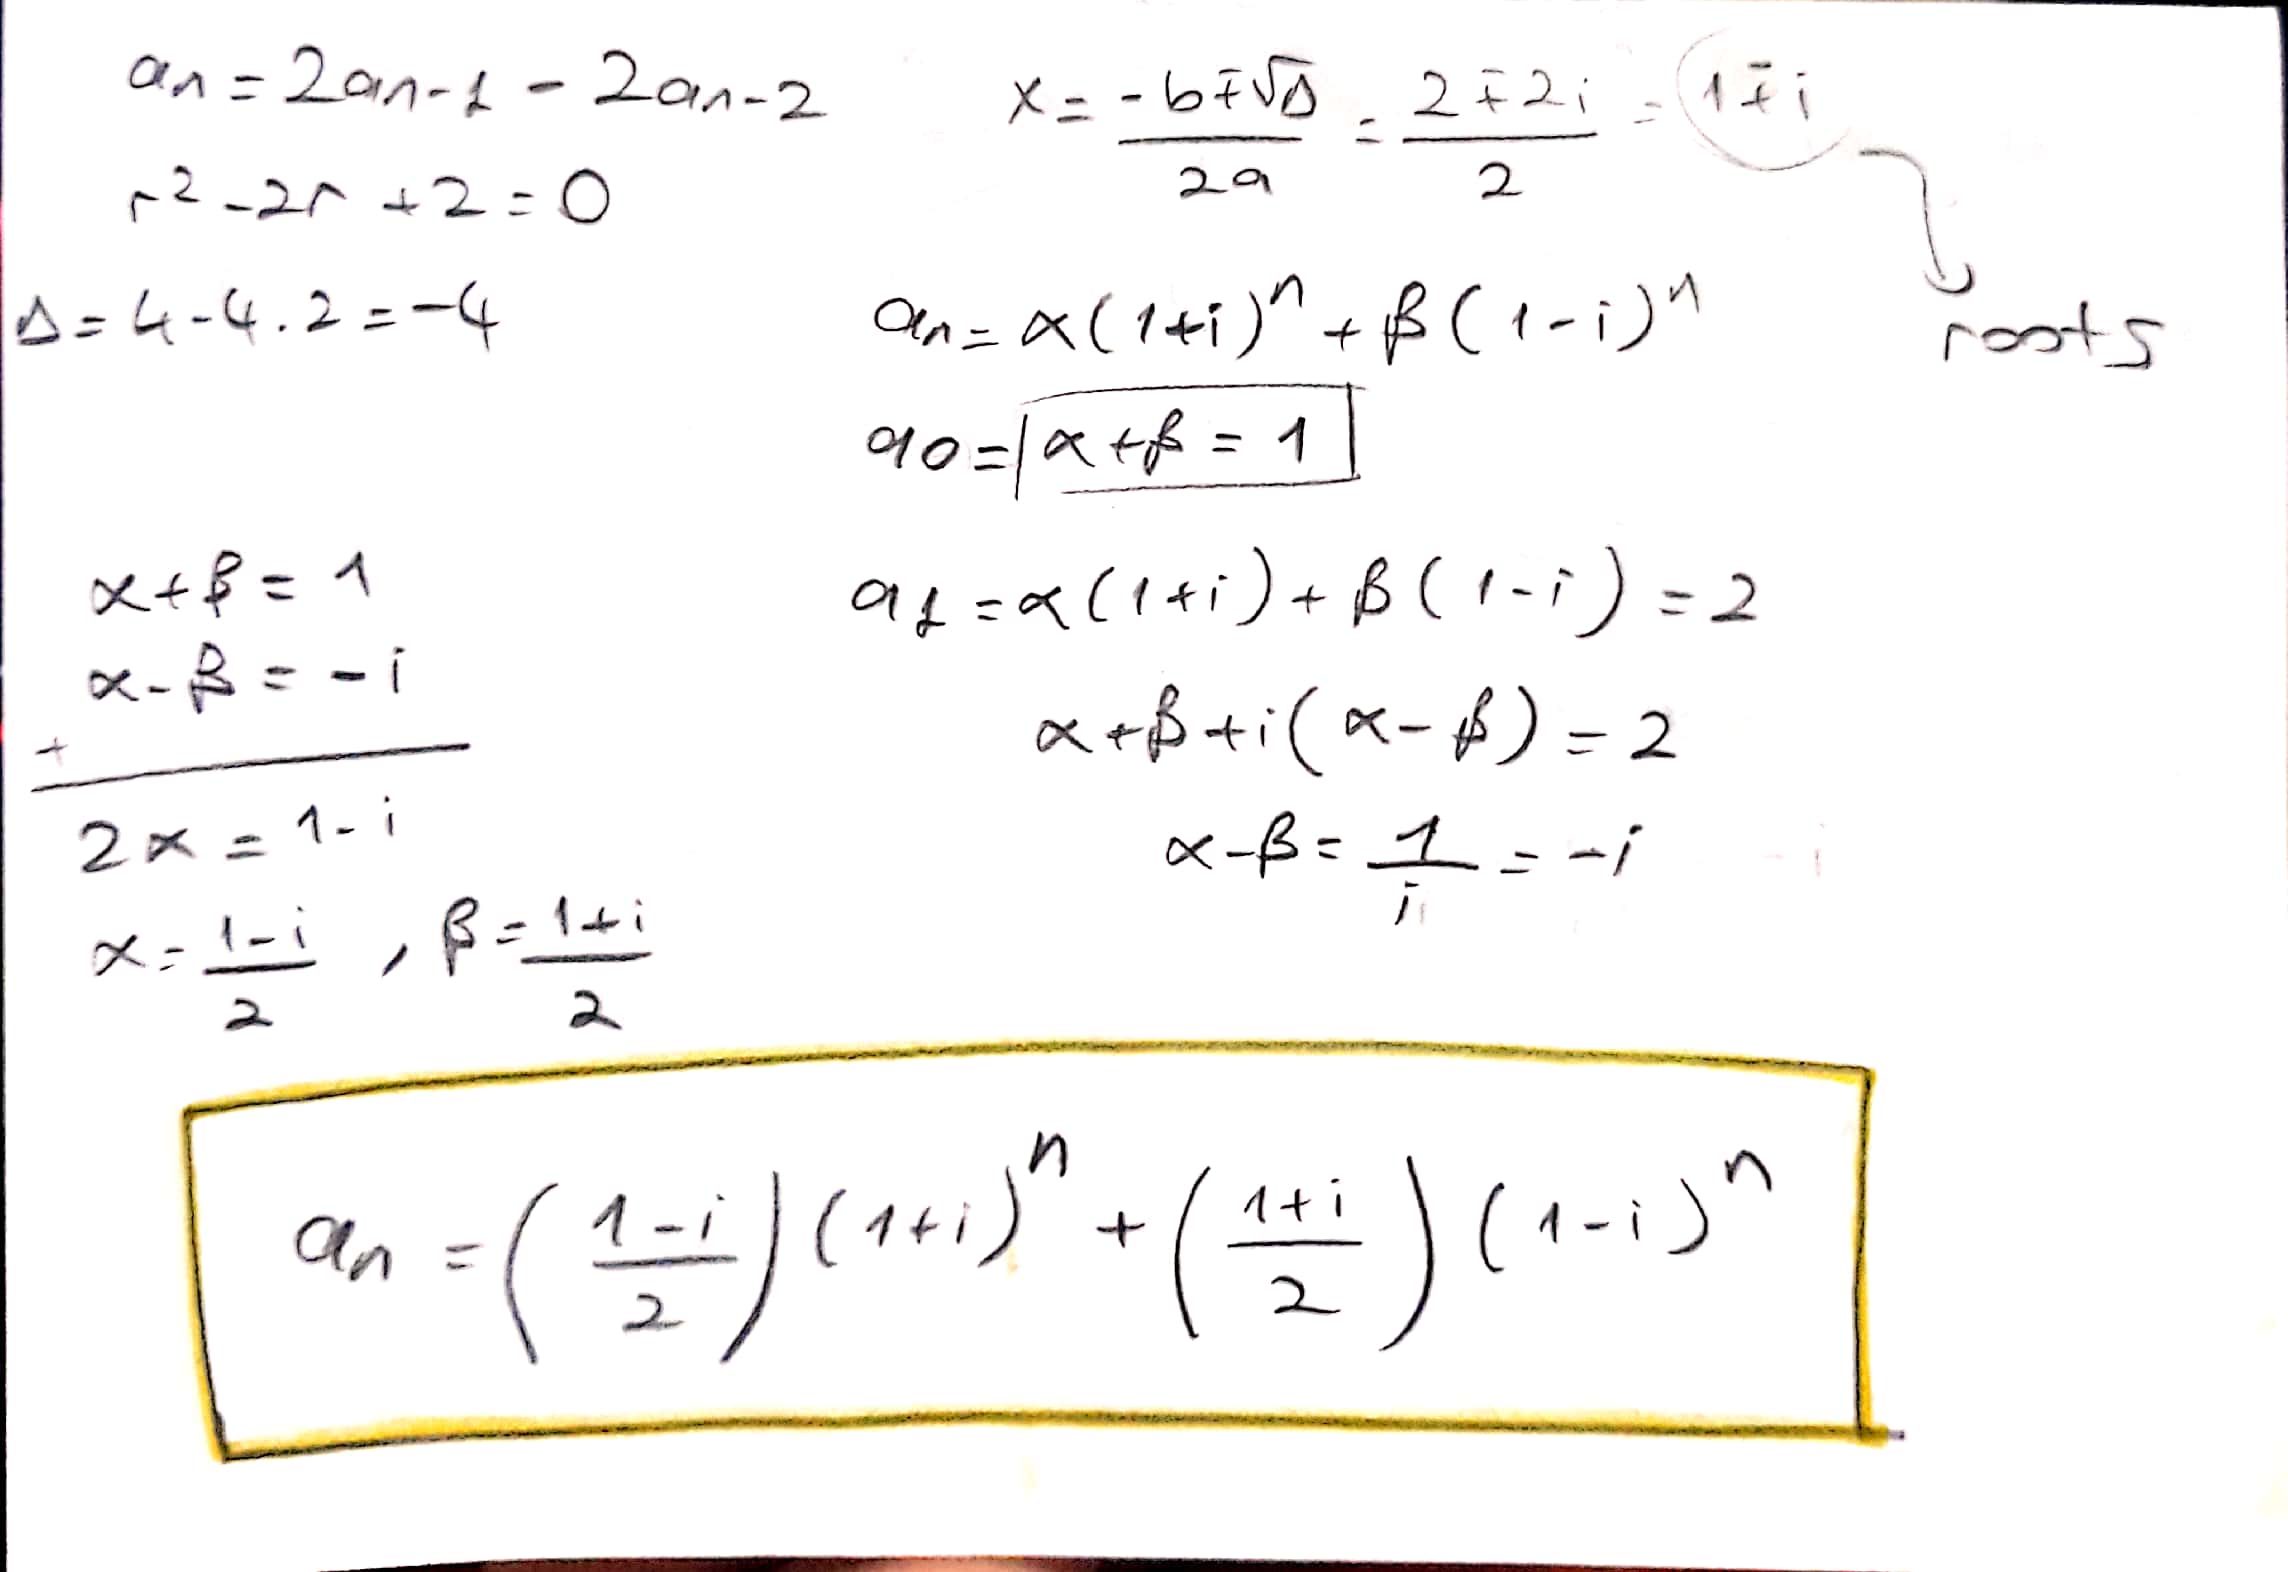 an = 2an-1 - 2an-2
r² - 2r + 2 = 0
Δ = 4 - 4.2 = -4
x = (-b∓√Δ)/2a = (2∓2i)/2 = 1∓i
roots
an = α(1+i)ⁿ + β(1-i)ⁿ
a0 = α+β = 1
a1 = α(1+i) + β(1-i) = 2
α+β+i(α-β) = 2
α-β = 1/i = -i
α+β = 1
α-β = -i
+
2α = 1-i
α = (1-i)/2 , β = (1+i)/2
an = ((1-i)/2)(1+i)ⁿ + ((1+i)/2)(1-i)ⁿ